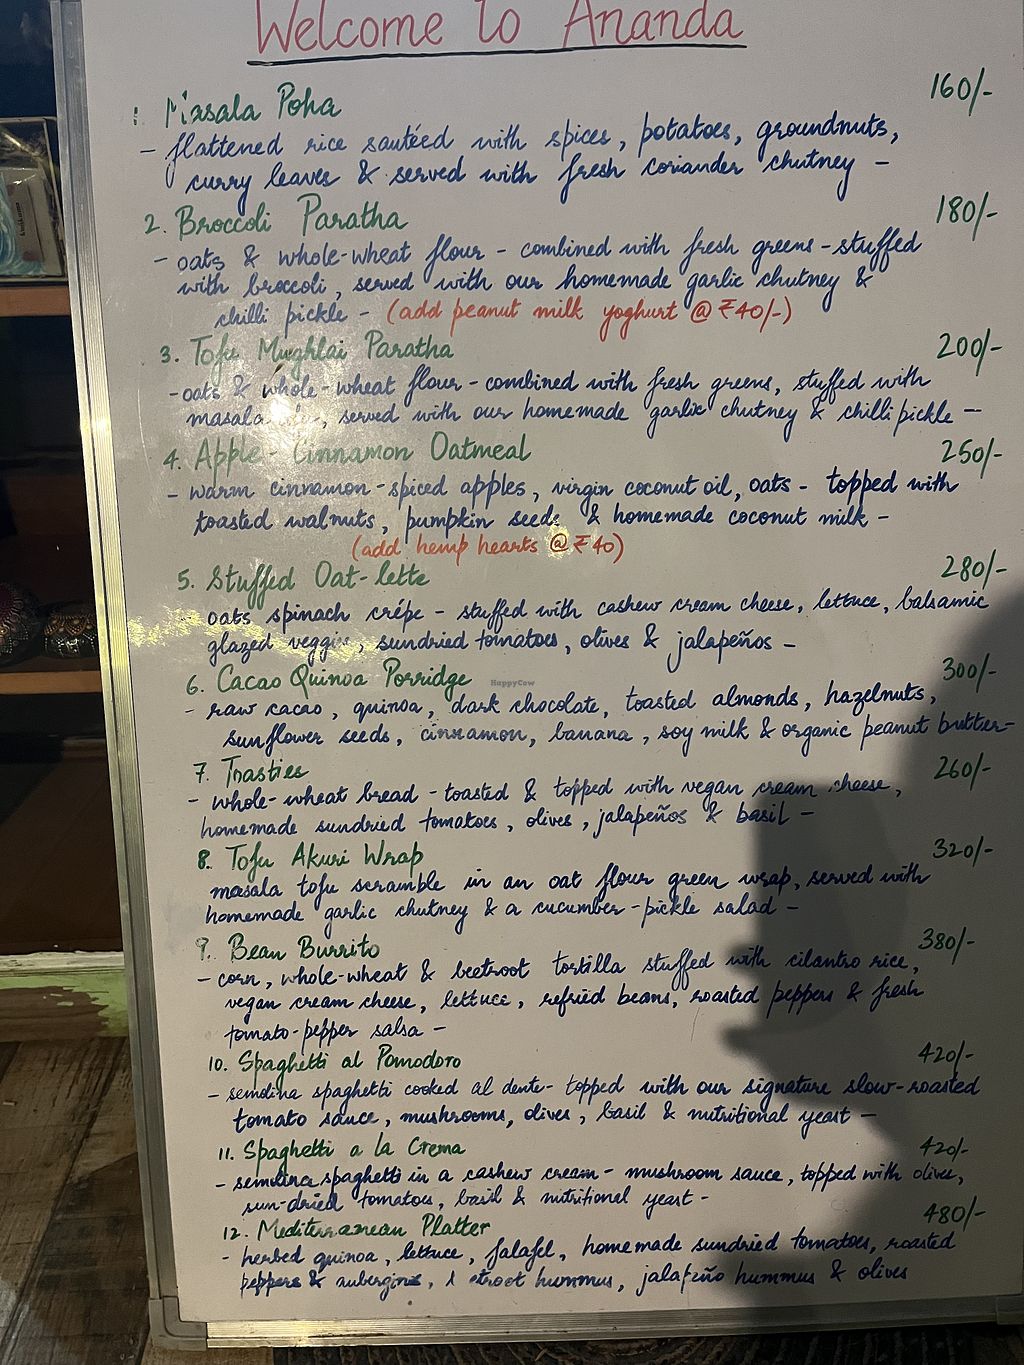 Welcome to Ananda
1 Masala Poha 160/-
- flattened rice sautéed with spices, potatoes, groundnuts,
curry leaves & served with fresh coriander chutney -
2. Broccoli Paratha 180/-
- oats & whole-wheat flour - combined with fresh greens - stuffed
with broccoli, served with our homemade garlic chutney &
chilli pickle - (add peanut milk yoghurt @ ₹40/-)
3. Tofu Mughlai Paratha 200/-
- oats & whole-wheat flour - combined with fresh greens, stuffed with
masala , served with our homemade garlic chutney & chilli pickle -
4. Apple-Cinnamon Oatmeal 250/-
- warm cinnamon-spiced apples, virgin coconut oil, oats - topped with
toasted walnuts, pumpkin seeds & homemade coconut milk -
(add hemp hearts @ ₹40)
5. Stuffed Oat-lette 280/-
oats spinach crépe - stuffed with cashew cream cheese, lettuce, balsamic
glazed veggies, sundried tomatoes, olives & jalapeños -
6. Cacao Quinoa Porridge 300/-
- raw cacao, quinoa, dark chocolate, toasted almonds, hazelnuts,
sunflower seeds, cinnamon, banana, soy milk & organic peanut butter-
HappyCow
7. Toasties 260/-
- whole-wheat bread - toasted & topped with vegan cream cheese,
homemade sundried tomatoes, olives, jalapeños & basil -
8. Tofu Akuri Wrap 320/-
masala tofu scramble in an oat flour green wrap, served with
homemade garlic chutney & a cucumber-pickle salad -
9. Bean Burrito 380/-
- corn, whole-wheat & beetroot tortilla stuffed with cilantro rice,
vegan cream cheese, lettuce, refried beans, roasted peppers & fresh
tomato-pepper salsa -
10. Spaghetti al Pomodoro 420/-
- semolina spaghetti cooked al dente - topped with our signature slow-roasted
tomato sauce, mushrooms, olives, basil & nutritional yeast -
11. Spaghetti a la Crema 420/-
- semolina spaghetti in a cashew cream - mushroom sauce, topped with olives,
sun-dried tomatoes, basil & nutritional yeast -
12. Mediterranean Platter 480/-
- herbed quinoa, lettuce, falafel, homemade sundried tomatoes, roasted
peppers & aubergine, beetroot hummus, jalapeño hummus & olives